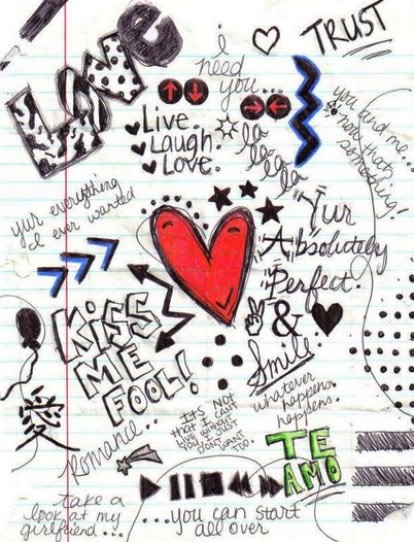 Love
TRUST
i
need
you...
Live.
Laugh.
Love.
la
la
la
la
you and me...
now that's
something!
yur everything
i'd ever wanted
Yur
Absolutely
Perfect.
&
Smile.
KiSS
ME
FOOL!
whatever
happens.
happens.
It's not
that I can't
live without
you, I just
don't want
too.
TE
AMO
爱
romance..
take a
look at my
girlfriend...
...you can start
all over